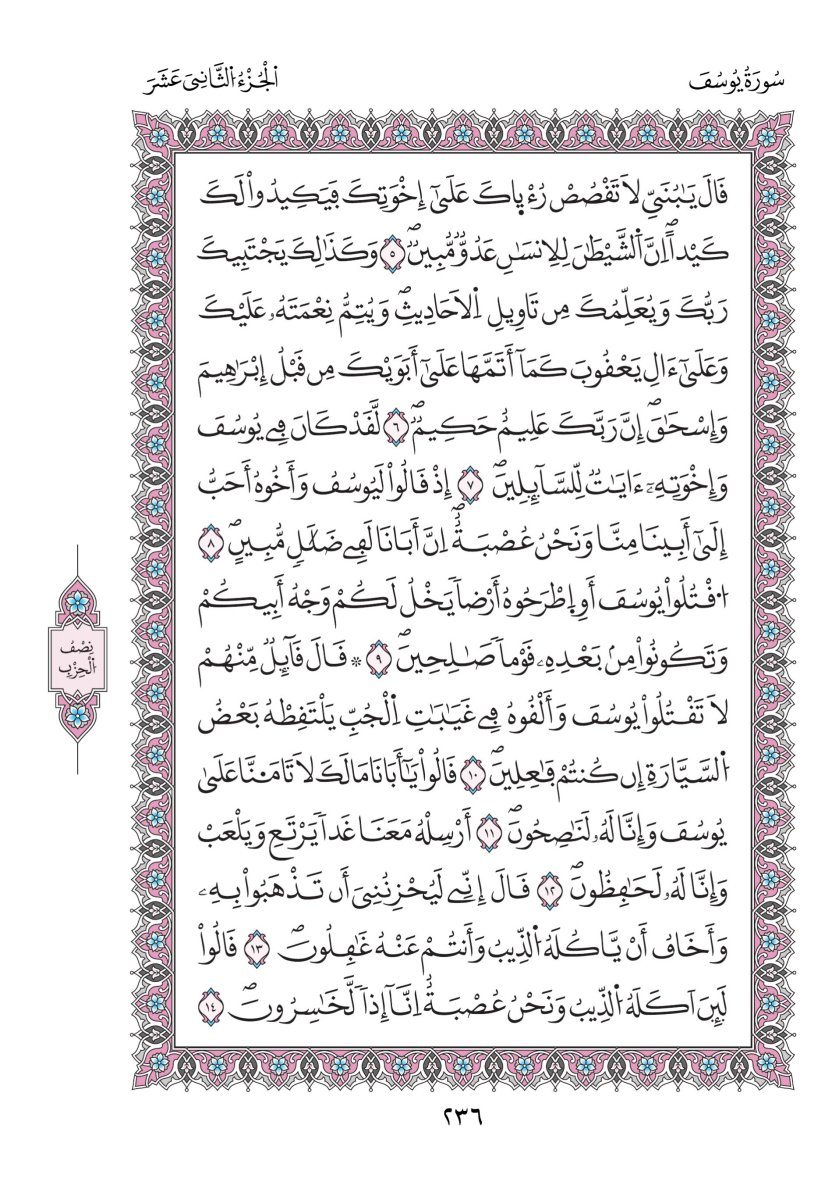 سُورَةُ يُوسُفَ
اَ۬لْجُزْءُ اُ۬لثَّانِيَ عَشَرَ
قَالَ يَٰبُنَيِّ لَا تَقْصُصْ رُءْي۪اكَ عَلَيٰٓ إِخْوَتِكَ فَيَكِيدُواْ لَكَ
كَيْداًۖ اِنَّ اَ۬لشَّيْطَٰنَ لِلِانسَٰنِ عَدُوّٞ مُّبِينٞۖ ٥ وَكَذَٰلِكَ يَجْتَبِيكَ
رَبُّكَ وَيُعَلِّمُكَ مِن تَاوِيلِ اِ۬لَاحَادِيثِۖ وَيُتِمُّ نِعْمَتَهُۥ عَلَيْكَ
وَعَلَيٰٓ ءَالِ يَعْقُوبَ كَمَآ أَتَمَّهَا عَلَيٰٓ أَبَوَيْكَ مِن قَبْلُ إِبْرَٰهِيمَ
وَإِسْحَٰقَۖ إِنَّ رَبَّكَ عَلِيمٌ حَكِيمٞۖ ٦ لَّقَدْ كَانَ فِے يُوسُفَ
وَإِخْوَتِهِۦٓ ءَايَٰتٞ لِّلسَّآئِلِينَۖ ٧ إِذْ قَالُواْ لَيُوسُفُ وَأَخُوهُ أَحَبُّ
إِلَيٰٓ أَبِينَا مِنَّا وَنَحْنُ عُصْبَةٌۖ اِنَّ أَبَانَا لَفِے ضَلَٰلٖ مُّبِينٍۖ ٨
اِ۟قْتُلُواْ يُوسُفَ أَوِ اِ۪طْرَحُوهُ أَرْضاٗ يَخْلُ لَكُمْ وَجْهُ أَبِيكُمْ
وَتَكُونُواْ مِنۢ بَعْدِهِۦ قَوْماٗ صَٰلِحِينَۖ ٩ ۞ قَالَ قَآئِلٞ مِّنْهُمْ
لَا تَقْتُلُواْ يُوسُفَ وَأَلْقُوهُ فِے غَيَٰبَٰتِ اِ۬لْجُبِّ يَلْتَقِطْهُ بَعْضُ
اُ۬لسَّيَّارَةِ إِن كُنتُمْ فَٰعِلِينَۖ ١٠ قَالُواْ يَٰٓأَبَانَا مَا لَكَ لَا تَامَ۬نَّا عَلَيٰ
يُوسُفَ وَإِنَّا لَهُۥ لَنَٰصِحُونَۖ ١١ أَرْسِلْهُ مَعَنَا غَداٗ يَرْتَعِ وَيَلْعَبْ
وَإِنَّا لَهُۥ لَحَٰفِظُونَۖ ١٢ قَالَ إِنِّے لَيُحْزِنُنِيَ أَن تَذْهَبُواْ بِهِۦ
وَأَخَافُ أَنْ يَّاكُلَهُ اُ۬لذِّيبُ وَأَنتُمْ عَنْهُ غَٰفِلُونَۖ ١٣ قَالُواْ
لَئِنَ اَكَلَهُ اُ۬لذِّيبُ وَنَحْنُ عُصْبَةٌۖ اِنَّآ إِذاٗ لَّخَٰسِرُونَۖ ١٤
نِصْفُ
اُ۬لْحِزْبِ
٢٣٦